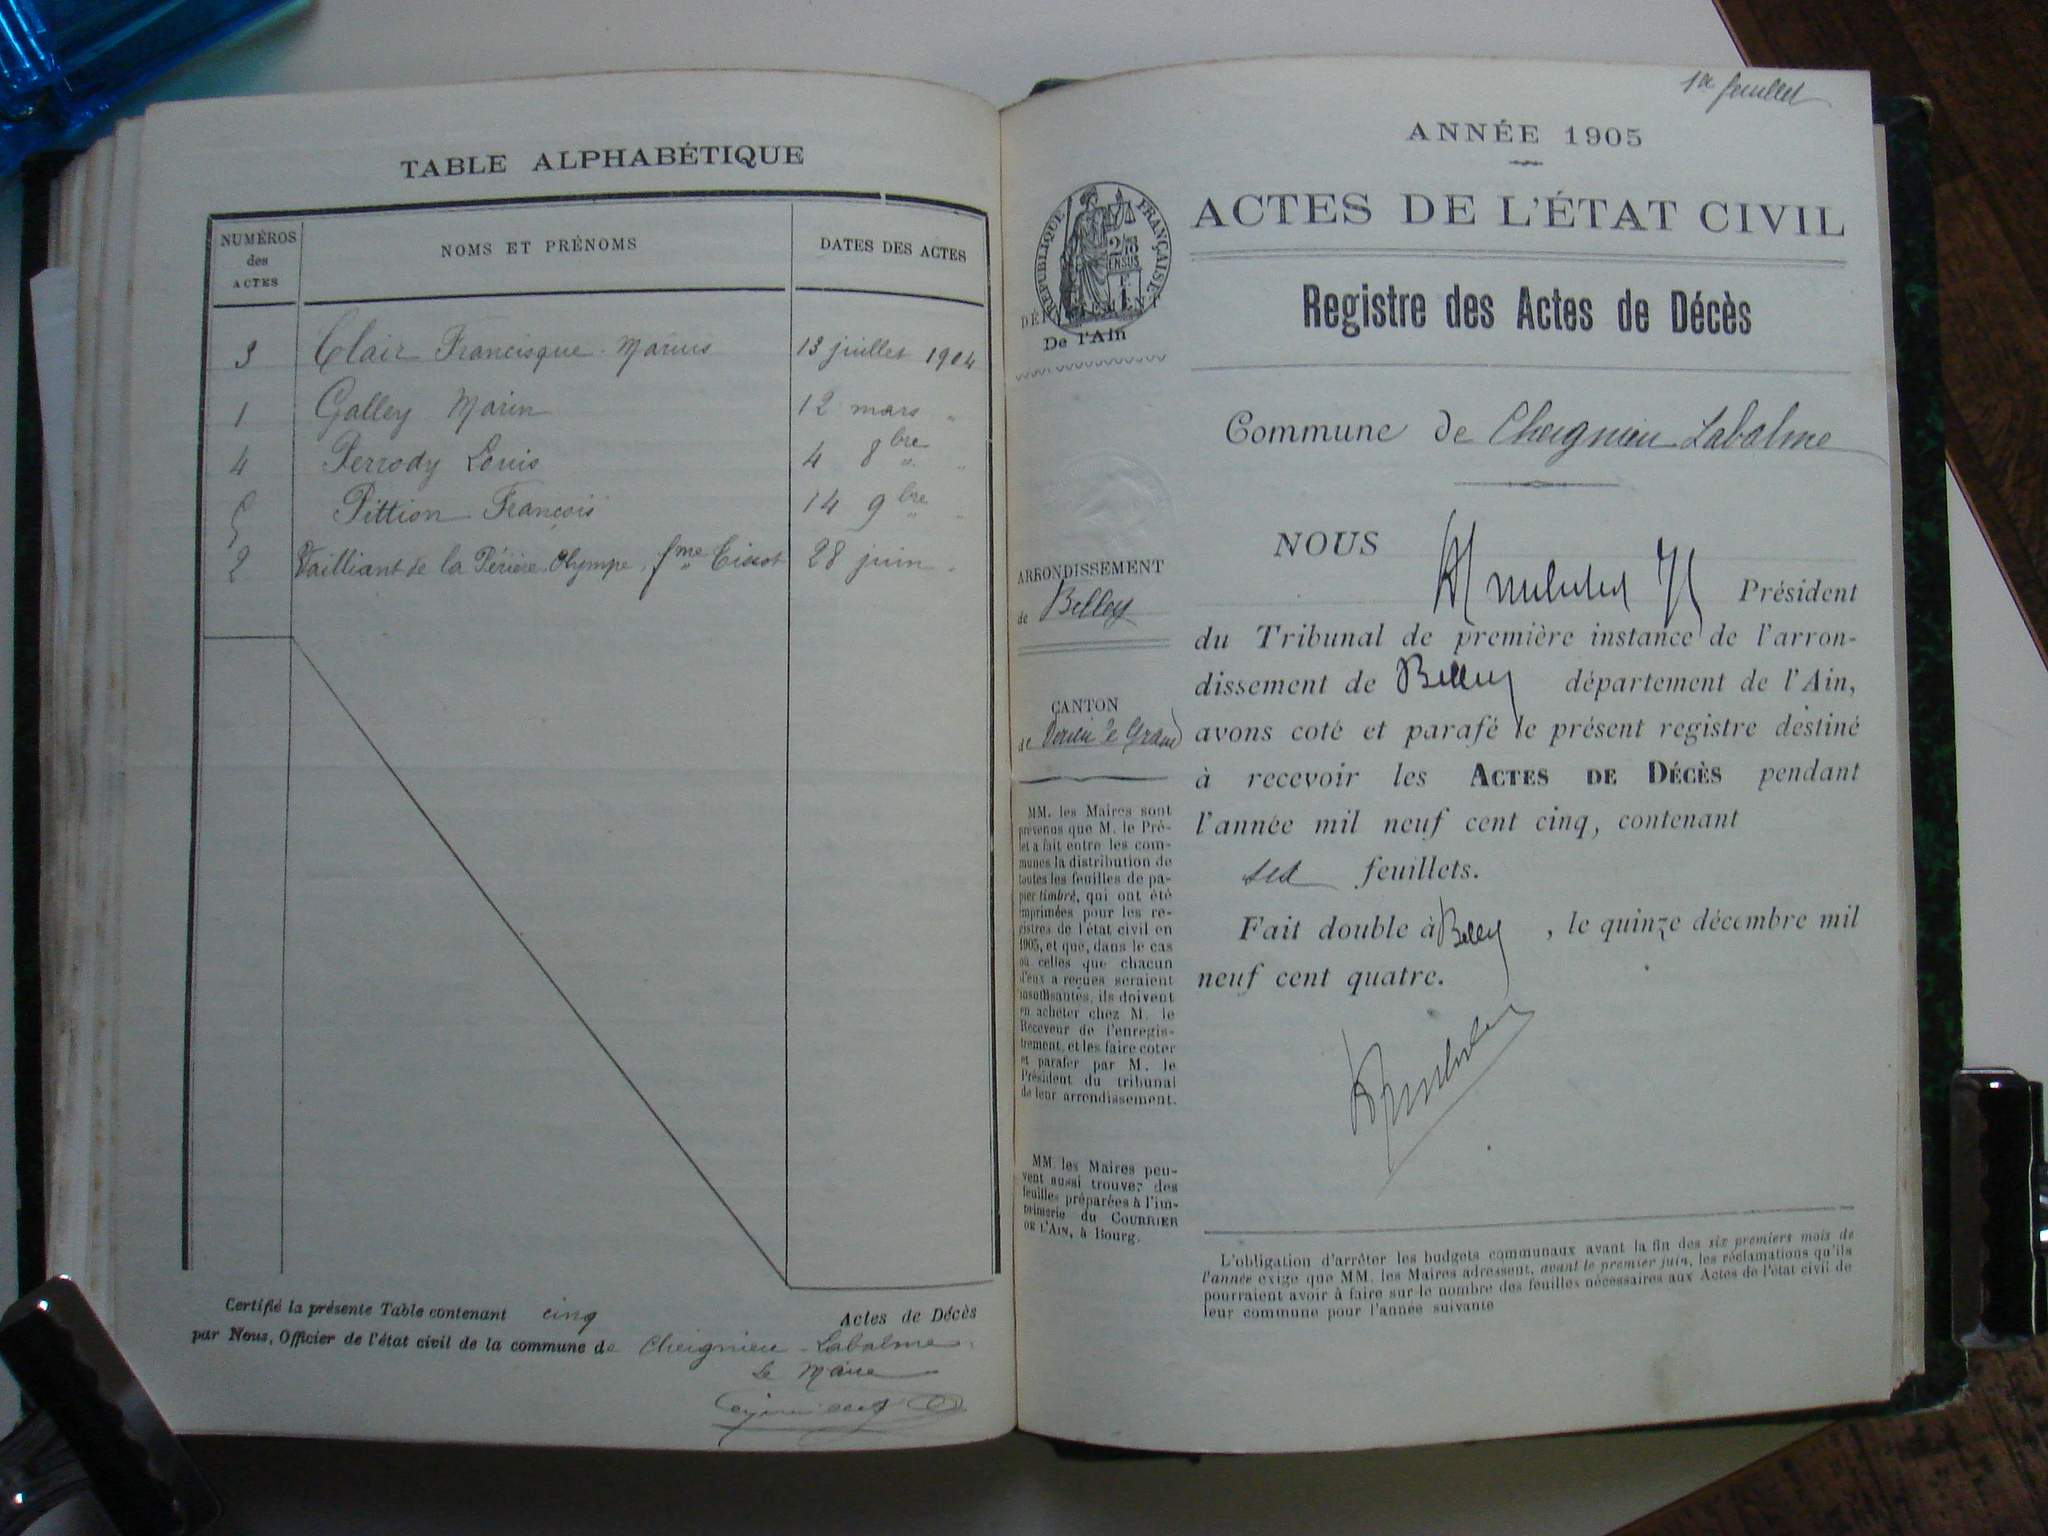 TABLE ALPHABÉTIQUE
NUMÉROS
des
ACTES
NOMS ET PRÉNOMS
DATES DES ACTES
3 Clair Francisque-Marius 13 juillet 1904
1 Galley Marin 12 mars "
4 Perrody Louis 4 8bre "
5 Pittion François 14 9bre "
2 Vailliant de la Périère Olympe, fme Tissot 28 juin "
Certifié la présente Table contenant cinq Actes de Décès
par Nous, Officier de l'état civil de la commune de Cheignieu-Labalme.
Le Maire
1er feuillet
ANNÉE 1905
ACTES DE L'ÉTAT CIVIL
Registre des Actes de Décès
RÉPUBLIQUE FRANÇAISE
DÉPARTEMENT
De l'Ain
Commune de Cheignieu Labalme
ARRONDISSEMENT
de Belley
CANTON
de Virieu le Grand
MM. les Maires sont
prévenus que M. le Pré-
fet a fait entre les com-
munes la distribution de
toutes les feuilles de pa-
pier timbré, qui ont été
imprimées pour les re-
gistres de l'état civil en
1905, et que, dans le cas
où celles que chacun
d'eux a reçues seraient
insuffisantes, ils doivent
en acheter chez M. le
Receveur de l'enregis-
trement, et les faire coter
et parafer par M. le
Président du tribunal
de leur arrondissement.
MM. les Maires peu-
vent aussi trouver des
feuilles préparées à l'im-
primerie du COURRIER
DE L'AIN, à Bourg.
NOUS
Président
du Tribunal de première instance de l'arron-
dissement de Belley département de l'Ain,
avons coté et parafé le présent registre destiné
à recevoir les ACTES DE DÉCÈS pendant
l'année mil neuf cent cinq, contenant
feuillets.
Fait double à Belley, le quinze décembre mil
neuf cent quatre.
L'obligation d'arrêter les budgets communaux avant la fin des six premiers mois de
l'année exige que MM. les Maires adressent, avant le premier juin, les réclamations qu'ils
pourraient avoir à faire sur le nombre des feuilles nécessaires aux Actes de l'état civil de
leur commune pour l'année suivante